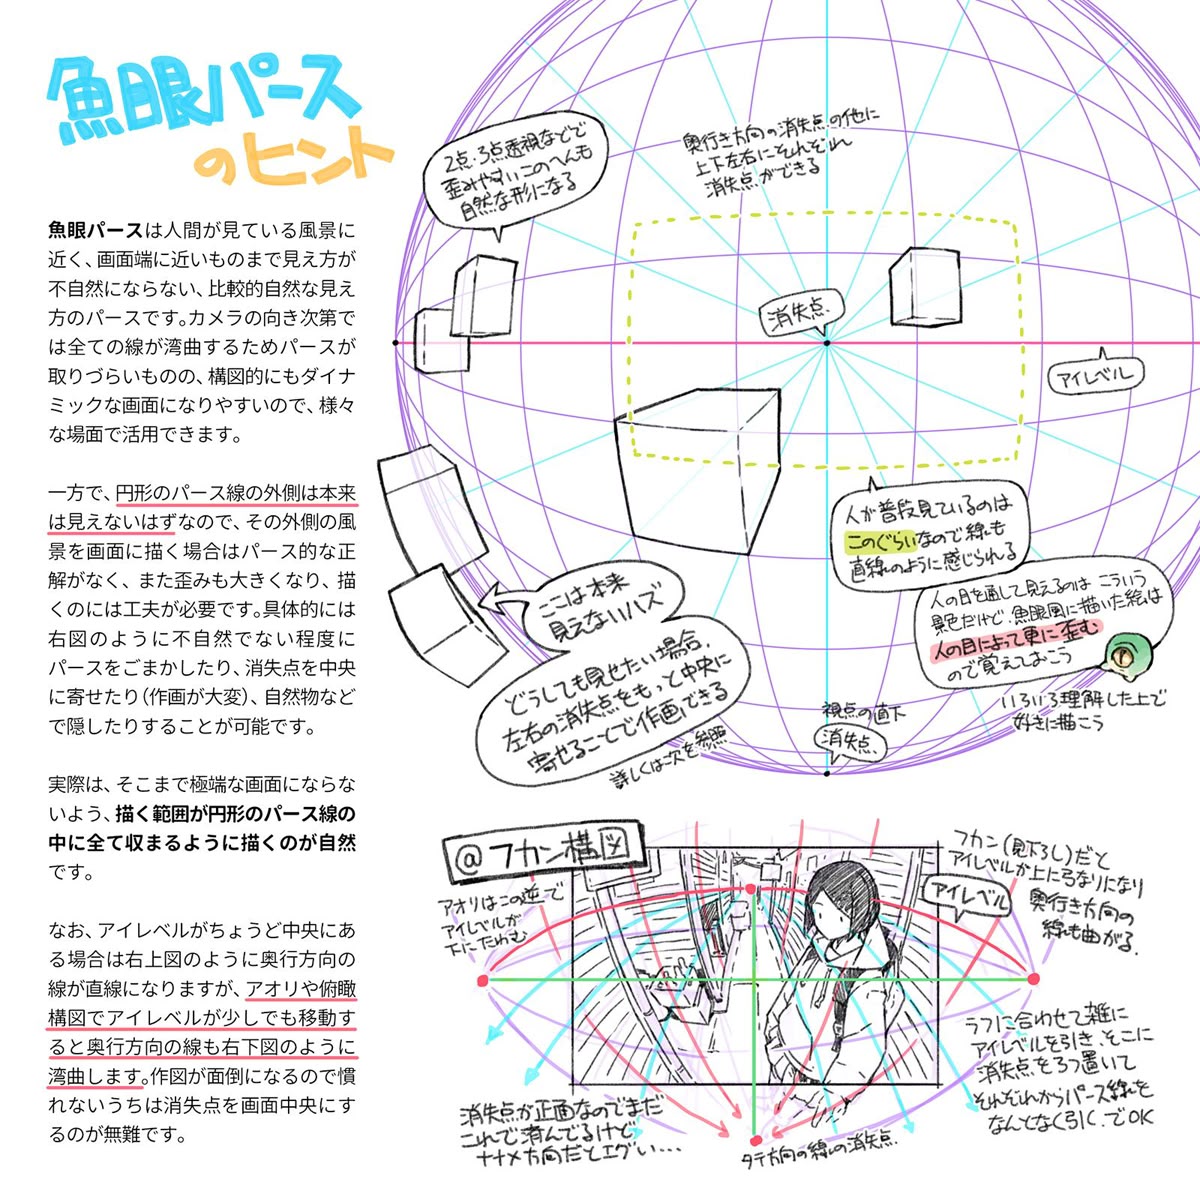 魚眼パース
のヒント
魚眼パースは人間が見ている風景に
近く、画面端に近いものまで見え方が
不自然にならない、比較的自然な見え
方のパースです。カメラの向き次第で
は全ての線が湾曲するためパースが
取りづらいものの、構図的にもダイナ
ミックな画面になりやすいので、様々
な場面で活用できます。
一方で、円形のパース線の外側は本来
は見えないはずなので、その外側の風
景を画面に描く場合はパース的な正
解がなく、また歪みも大きくなり、描
くのには工夫が必要です。具体的には
右図のように不自然でない程度に
パースをごまかしたり、消失点を中央
に寄せたり（作画が大変）、自然物など
で隠したりすることが可能です。
実際は、そこまで極端な画面にならな
いよう、描く範囲が円形のパース線の
中に全て収まるように描くのが自然
です。
なお、アイレベルがちょうど中央にあ
る場合は右上図のように奥行方向の
線が直線になりますが、アオリや俯瞰
構図でアイレベルが少しでも移動す
ると奥行方向の線も右下図のように
湾曲します。作図が面倒になるので慣
れないうちは消失点を画面中央にす
るのが無難です。
2点・3点透視などで
歪みやすいこのへんも
自然な形になる
奥行き方向の消失点の他に
上下左右にそれぞれ
消失点ができる
消失点
アイレベル
人が普段見ているのは
このぐらいなので線も
直線のように感じられる
人の目を通して見えるのはこういう
景色だけど、魚眼風に描いた絵は
人の目によって更に歪む
ので覚えておこう
いろいろ理解した上で
好きに描こう
ここは本来
見えないハズ
どうしても見せたい場合、
左右の消失点をもっと中央に
寄せることで作画できる
詳しくは次を参照
視点の直下
消失点
@フカン構図
アオリはこの逆で
アイレベルが
下にたわむ
フカン(見下ろし)だと
アイレベルが上に弓なりになり
奥行き方向の
線も曲がる.
アイレベル
ラフに合わせて雑に
アイレベルを引き、そこに
消失点を3つ置いて
それぞれからパース線を
なんとなく引く.でOK
消失点が正面なのでまだ
これで済んでるけど
ナナメ方向だとエグい…
タテ方向の線の消失点.